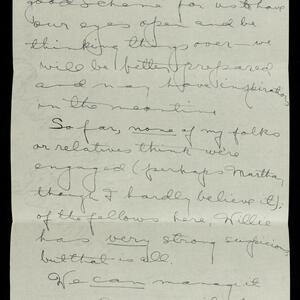 good scheme for us to have
our eyes open and be
thinking things over—we
will be better prepared
and may have inspiration
in the meantime.
So far, none of my folks
or relatives think we're
engaged (perhaps Martha,
though I hardly believe it);
of the fellows here, Willie
has very strong suspicions
but that is all.
We can manage it